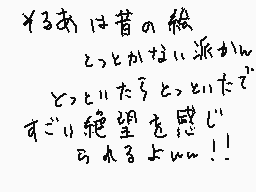 そるあは昔の絵
とっとかない派かん
とっといたらとっといたで
すごい絶望を感じ
られるよいい!!